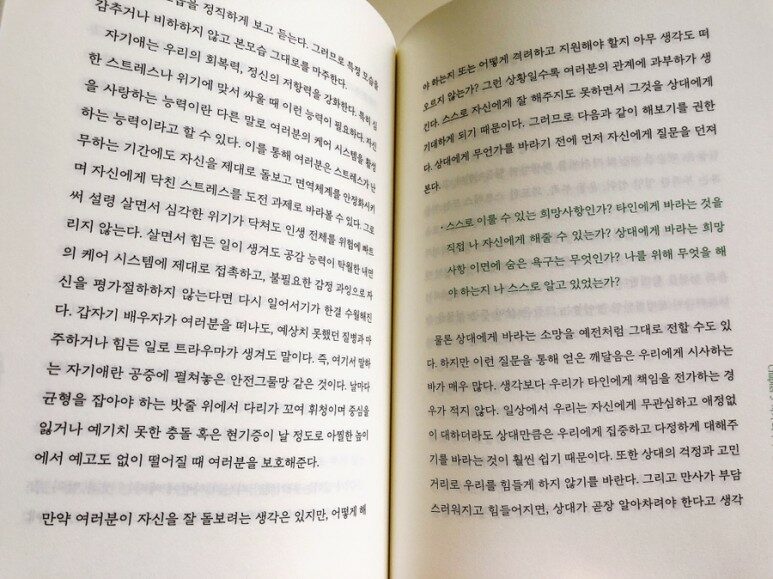 모습을 정직하게 보고 듣는다. 그러므로 특정 모습을
감추거나 비하하지 않고 본모습 그대로를 마주한다.
자기애는 우리의 회복력, 정신의 저항력을 강화한다. 특히 심
한 스트레스나 위기에 맞서 싸울 때 이런 능력이 필요하다. 자신
을 사랑하는 능력이란 다른 말로 여러분의 케어 시스템을 활성
하는 능력이라고 할 수 있다. 이를 통해 여러분은 스트레스가 난
무하는 기간에도 자신을 제대로 돌보고 면역체계를 안정화시키
며 자신에게 닥친 스트레스를 도전 과제로 바라볼 수 있다. 그로
써 설령 살면서 심각한 위기가 닥쳐도 인생 전체를 위험에 빠트
리지 않는다. 살면서 힘든 일이 생겨도 공감 능력이 탁월한 내면
의 케어 시스템에 제대로 접촉하고, 불필요한 감정 과잉으로 자
신을 평가절하하지 않는다면 다시 일어서기가 한결 수월해진
다. 갑자기 배우자가 여러분을 떠나도, 예상치 못했던 질병과 마
주하거나 힘든 일로 트라우마가 생겨도 말이다. 즉, 여기서 말하
는 자기애란 공중에 펼쳐놓은 안전그물망 같은 것이다. 날마다
균형을 잡아야 하는 밧줄 위에서 다리가 꼬여 휘청이며 중심을
잃거나 예기치 못한 충돌 혹은 현기증이 날 정도로 아찔한 높이
에서 예고도 없이 떨어질 때 여러분을 보호해준다.
만약 여러분이 자신을 잘 돌보려는 생각은 있지만, 어떻게 해
야 하는지 또는 어떻게 격려하고 지원해야 할지 아무 생각도 떠
오르지 않는가? 그런 상황일수록 여러분의 관계에 과부하가 생
긴다. 스스로 자신에게 잘 해주지도 못하면서 그것을 상대에게
기대하게 되기 때문이다. 그러므로 다음과 같이 해보기를 권한
다. 상대에게 무언가를 바라기 전에 먼저 자신에게 질문을 던져
본다.
· 스스로 이룰 수 있는 희망사항인가? 타인에게 바라는 것을
직접 나 자신에게 해줄 수 있는가? 상대에게 바라는 희망
사항 이면에 숨은 욕구는 무엇인가? 나를 위해 무엇을 해
야 하는지 나 스스로 알고 있었는가?
물론 상대에게 바라는 소망을 예전처럼 그대로 전할 수도 있
다. 하지만 이런 질문을 통해 얻은 깨달음은 우리에게 시사하는
바가 매우 많다. 생각보다 우리가 타인에게 책임을 전가하는 경
우가 적지 않다. 일상에서 우리는 자신에게 무관심하고 애정없
이 대하더라도 상대만큼은 우리에게 집중하고 다정하게 대해주
기를 바라는 것이 훨씬 쉽기 때문이다. 또한 상대의 걱정과 고민
거리로 우리를 힘들게 하지 않기를 바란다. 그리고 만사가 부담
스러워지고 힘들어지면, 상대가 곧장 알아차려야 한다고 생각